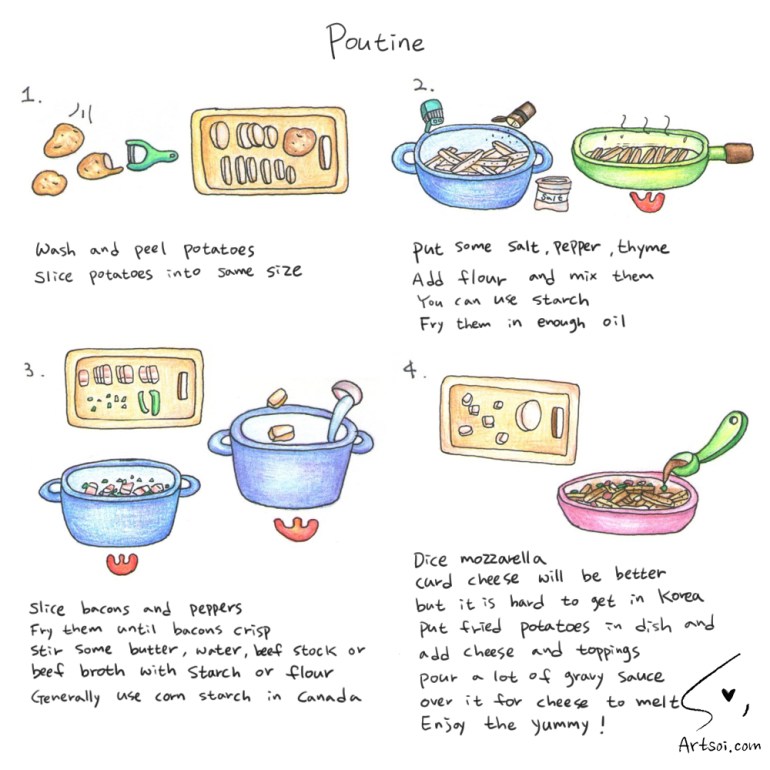 Poutine
1.
Wash and peel potatoes
Slice potatoes into same size
2.
Salt
Put some salt, pepper, thyme
Add flour and mix them
You can use starch
Fry them in enough oil
3.
Slice bacons and peppers
Fry them until bacons crisp
Stir some butter, water, beef stock or
beef broth with starch or flour
Generally use corn starch in Canada
4.
Dice mozzarella
curd cheese will be better
but it is hard to get in Korea
Put fried potatoes in dish and
add cheese and toppings
pour a lot of gravy sauce
over it for cheese to melt
Enjoy the yummy!
Artsoi.com